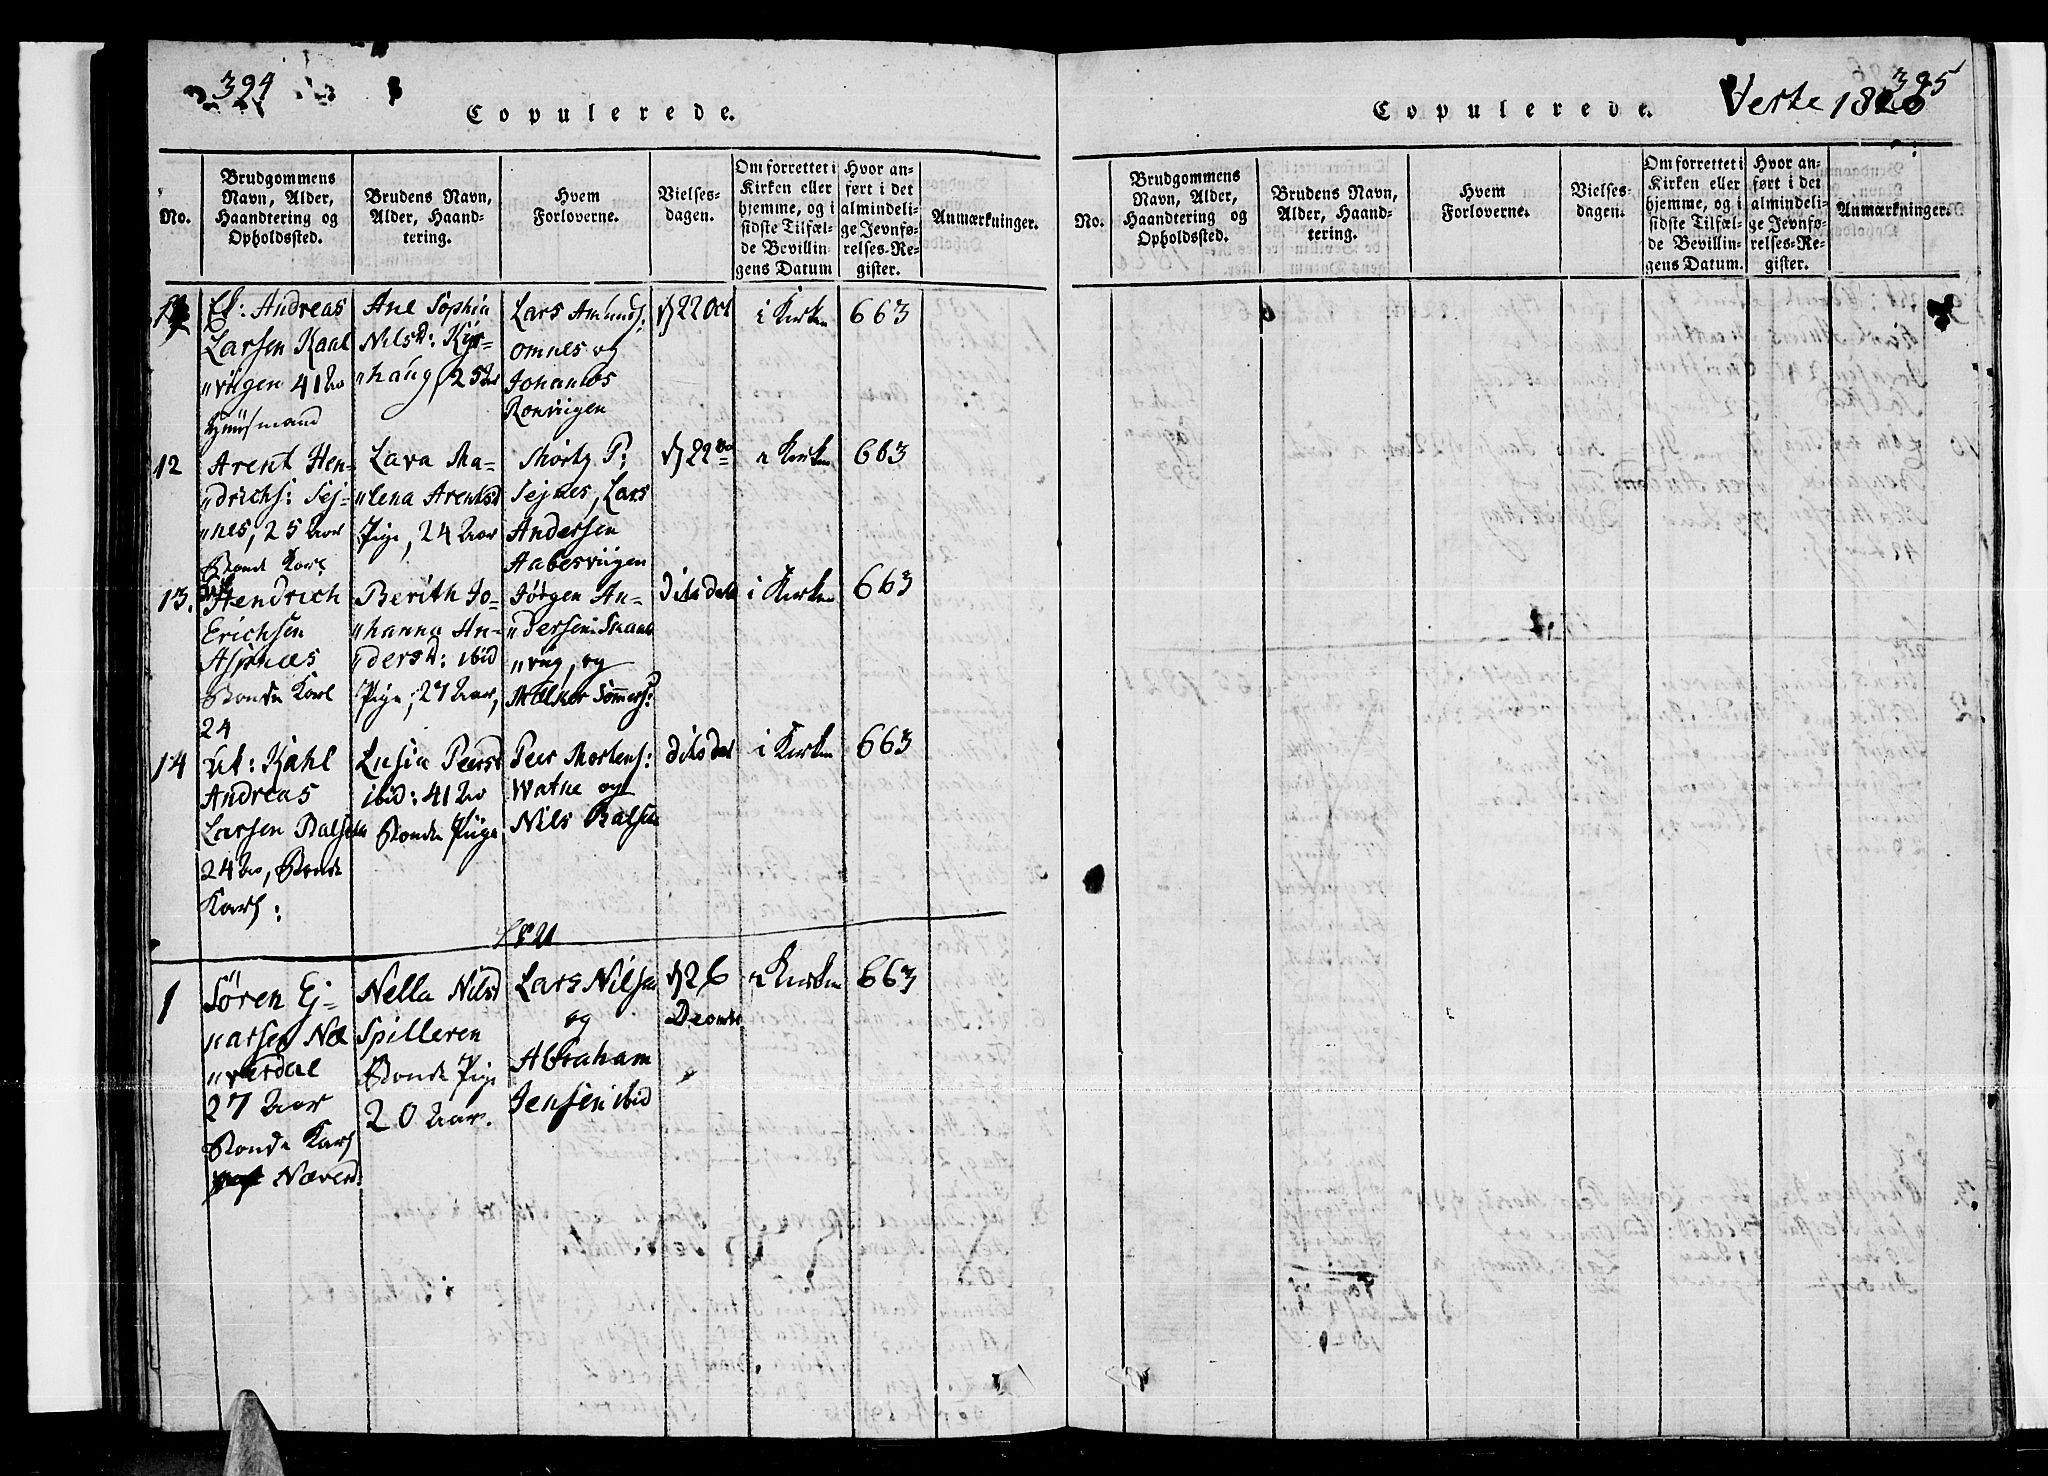 394
Copulerede.
No.
Brudgommens
Navn, Alder,
Haandtering og
Opholdssted.
Brudens Navn,
Alder, Haand-
tering.
Hvem
Forloverne.
Vielses-
dagen.
Om forrettet i
Kirken eller
hjemme, og i
sidste Tilfæl-
de Bevillin-
gens Datum
Hvor an-
ført i det
almindeli-
ge Jevnfø-
relses-Re-
gister.
Anmærkninger.
Andreas
Larsen Kaal
"viigen 41 Ar
Huusmand
Ane Sophia
Nilsd: Kyr-
"haug, 25 Ar
Lars Amunds:
omnes og
Johannes
Ronviigen
22 Oct
i Kirken
663
12
Arent Hen-
"drichs: Sej-
"nes, 25 Aar
Bonde Karl
Lava Ma-
"lena Arentsd
Pige, 24 Aar
Mortz P:
Sejnes, Lars
Andersen
Aabesviigen
22
i Kirken
663
13.
Hendrich
Erichsen
Asjnæs
Bonde Karl
24
Berith Jo-
"hanna An-
"dersd: ibid
Pige, 27 Aar,
Jørgen An-
"dersen: Snaa
"viig, og
Sommers:
dito dato
i Kirken
663
14
Ut: Kahl
Andreas
Larsen Balsen
24 Ar, Bonde
Karl:
Lusia Peersd
ibid: 41 Ar
Bonde Piige
Peer Mortens:
Wathe og
Nils Balsen
dito dat
i Kirken
663
1821
1
Søren Ej-
narsen Næ
"verdal
27 Aar
Bonde Karl
Næverd:
Nella Nilsd
Spilleren
Bonde Pige
20 Aar.
Lars Nilsen
og
Abraham
Jensen ibid
26
Decembr
i Kirken
663
395
Verte 1820
Copulerede.
No.
Brudgommens
Navn, Alder,
Haandtering og
Opholdssted.
Brudens Navn,
Alder, Haand-
tering.
Hvem
Forloverne.
Vielses-
dagen.
Om forrettet i
Kirken eller
hjemme, og i
sidste Tilfæl-
de Bevillin-
gens Datum.
Hvor an-
ført i det
almindeli-
ge Jevnfø-
relses-Re-
gister.
Anmærkninger.